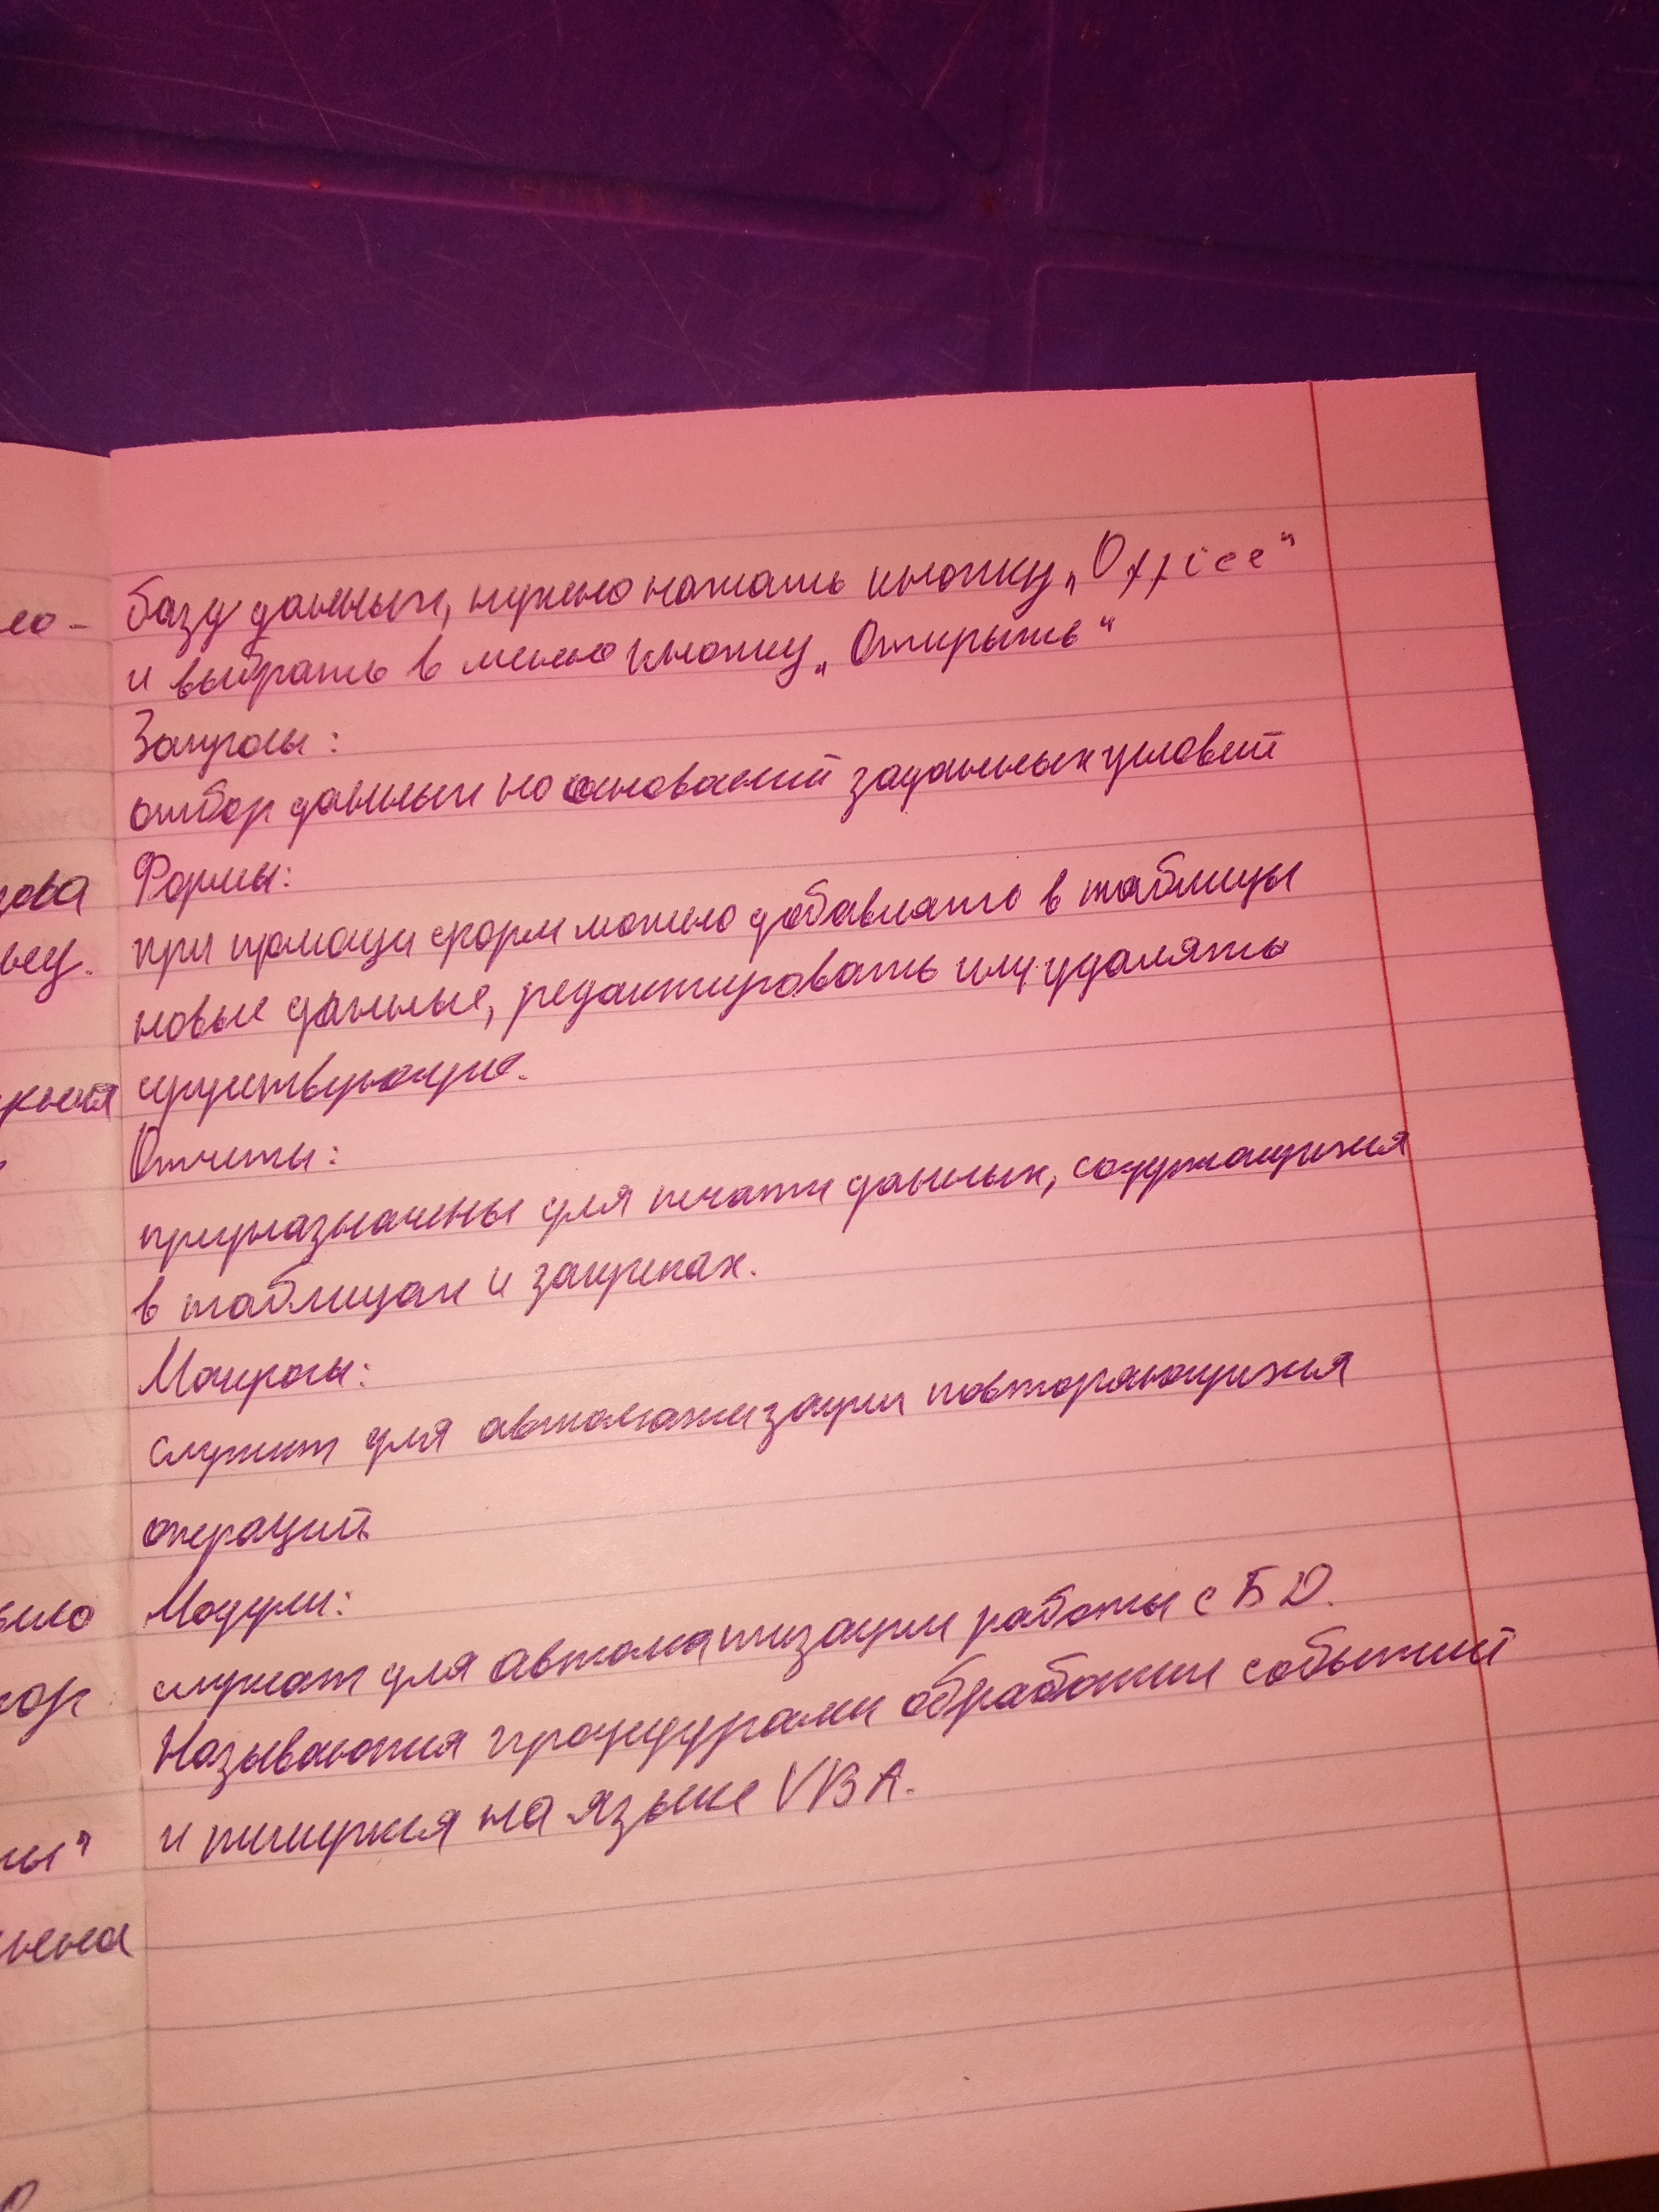 базу данных, нужно нажать кнопку „Office“
и выбрать в меню кнопку „Открыть“
Запросы:
отбор данных на оснований заданных условий
Формы:
при помощи форм можно добавлять в таблицы
новые данные, редактировать или удалять
существующие.
Отчеты:
предназначены для печати данных, содержащихся
в таблицах и запросах.
Макросы:
служит для автоматизации повторяющихся
операций
Модули:
служат для автоматизации работы с БД.
Называются процедурами обработки событий
и пишутся на языке VBA.